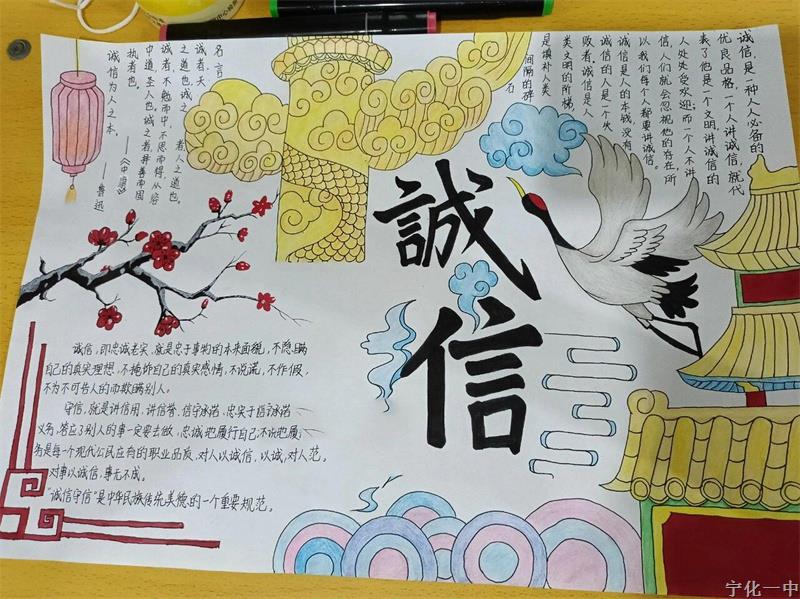 名言
诚者,天
之道也诚之
者人之道也。
诚者,不勉而中,不思而得,从容
中道圣人也。诚之者择善而固
执者也
——《中庸》
诚信为人之本。
——鲁迅
诚信,是一种人人必备的
优良品格,一个人讲诚信,就代
表了他是一个文明讲诚信的
人处处受欢迎;而一个人不讲
信,人们就会忽视他的存在,所
以我们每个人都要讲诚信。
诚信是人的本钱,没有
诚信的人是一个失
败者。诚信是人
类文明的阶梯
是填补人类
间隔的碎
石
誠
信
诚信,即忠诚老实,就是忠于事物的本来面貌,不隐瞒
自己的真实理想,不掩饰自己的真实感情,不说谎,不作假,
不为不可告人的而欺瞒别人。
守信,就是讲信用,讲信誉,信守承诺,忠实于信守承诺
义务,答应了别人的事一定要去做,忠诚地履行自己不说地履
务是每个现代公民应有的职业品质,对人以诚信,以诚,对人范。
对事以诚信,事无不成。
"诚信守信"是中华民族传统美德的一个重要规范。
宁化一中